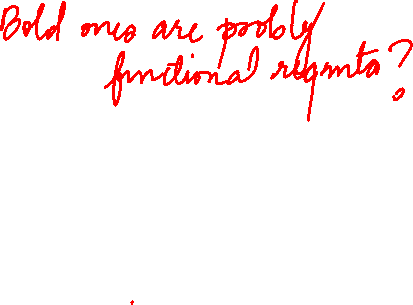 Bold ones are probly
functional reqmnts?